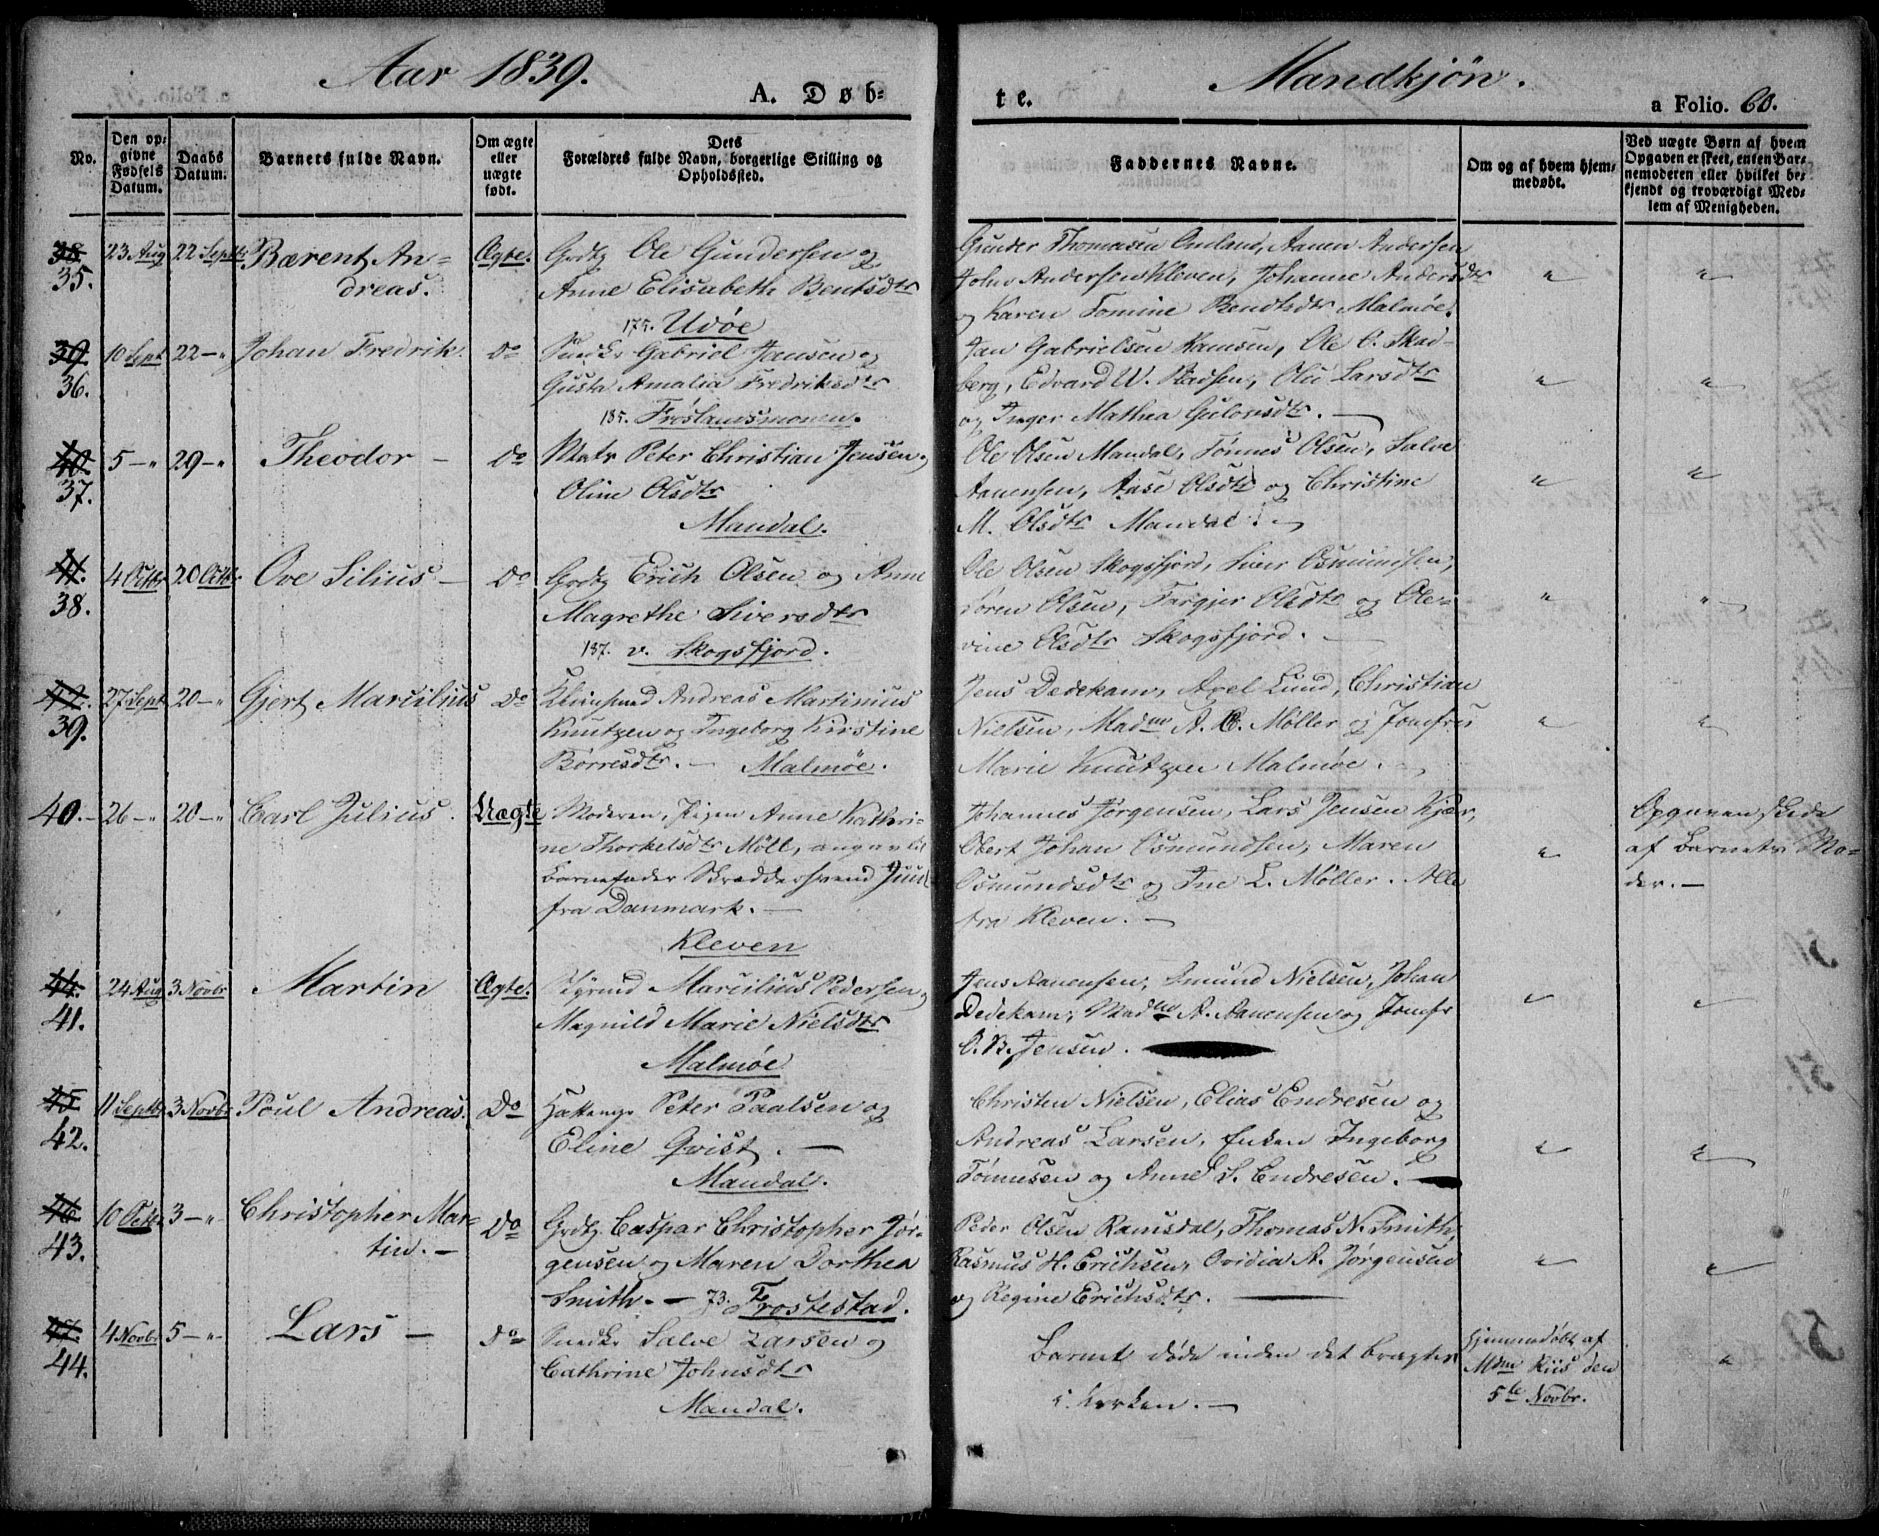 Aar 1839.
A. Døb=
No.
Den op=
givne
Fødsels
Datum.
Daabs
Datum.
Barnets fulde Navn.
Om ægte
eller
uægte
født.
Dets
Forældres fulde Navn, borgerlige Stilling og
Opholdssted.
38.
35.
23 Aug
22 Septbr
Bærent An=
dreas.
Ægte.
Grdbg Ole Gundersen og
Anne Elisabeth Bentsdtr
175. Udøe
39.
36.
10 Sept
22 — "
Johan Fredrik.
Do
Snedkr Gabriel Jansen og
Gusta Amalia Fredriksdtr
185. Frøslandsmonen.
40.
37.
5 — "
29 — "
Theodor —
Do
Matr Peter Christian Jensen og
Oline Olsdtr
Mandal.
41.
38.
4 Octbr
20 Octbr
Ove Silius —
Do
Grdbg Erich Olsen og Anne
Magrethe Siversdtr
187. v. Skogsfjord.
42.
39.
27 Sept
20 — "
Gjert Marcilius
Do
Andreas Martinius
Knutzen og Ingeborg Kirstine
Børresdtr. — Malmøe.
40. —
26 — "
20 — "
Carl Julius.
Uægte
Moderen, Pigen Anne Kathri=
ne Thorkelsdtr Møll, angav til
Barnefader Skræddersvend Juul
fra Danmark. —
Kleven
44.
41.
24 Aug
3 Novbr
Martin
Ægte.
Styrmd Marcilius Pedersen og
Magnild Marie Nielsdtr
Malmøe
45.
42.
11 Septbr
3 Novbr
Poul Andreas.
Do
Peter Paalsen og
Eline Qvist. —
Mandal.
46.
43.
10 Octbr
3 — "
Christopher Mar=
tin. —
Do
Grdbg Caspar Christopher Jør=
gensen og Maren Dorthea
Smith. — 73. Frostestad.
47.
44.
4 Novbr
5 — "
Lars —
Do
Snedkr Salve Larsen og
Cathrine Johnsdtr
Mandal.
te.
Mandkjøn.
a Folio. 60.
Faddernes Navne.
Om og af hvem hjem=
medøbt.
Ved uægte Børn af hvem
Opgaven er skeet, enten Bar=
nemoderen eller hvilket be=
kjendt og troværdigt Med=
lem af Menigheden.
Gunder Thomasen Omland, Aanen Andersen
John Andersen Kleven, Johanne Andersdtr
og Karen Tomine Bendtsdtr Malmøe.
Jan Gabrielsen Ramsen, Ole O. Skad=
berg, Edvard W. Madsen, Olie Larsdtr
og Inger Mathea Gulovsdtr. —
Ole Olsen Mandal, Tønnes Olsen, Salve
Aanensen, Aase Olsdtr og Christine
M. Olsdtr Mandal. —
Ole Olsen Skogsfjord, Siver Osmundsen,
Søren Olsen, Targjer Olsdtr og Ole=
vine Olsdtr Skogsfjord. —
Jens Dedekam, Axel Lund, Christian
Nielsen, Madme A. C. Møller og Jomfru
Marie Knutzen Malmøe. —
Johannes Jørgensen, Lars Jensen Kjær,
Obert Johan Osmundsen, Maren
Osmundsdtr og Ine L. Møller. Alle
fra Kleven. —
Opgaven skede
af Barnets Mo=
der. —
Jens Aanensen, Amund Nielsen, Johan
Dedekam, Madme A. Aanensen og Jomfr
O. B. Jensen.
Christen Nielsen, Elias Endresen og
Andreas Larsen, Enken Ingeborg
Tønnesen og Anne S. Endresen. —
Peder Olsen Ramsdal, Thomas N. Smith,
Rasmus H. Erichsen, Ovidia A. Jørgensen
og Regine Erichsdtr. —
Barnet døde inden det bragtes
t. Kirken. —
Hjemmedøbt af
Mdm Kiis den
5te Novbr.